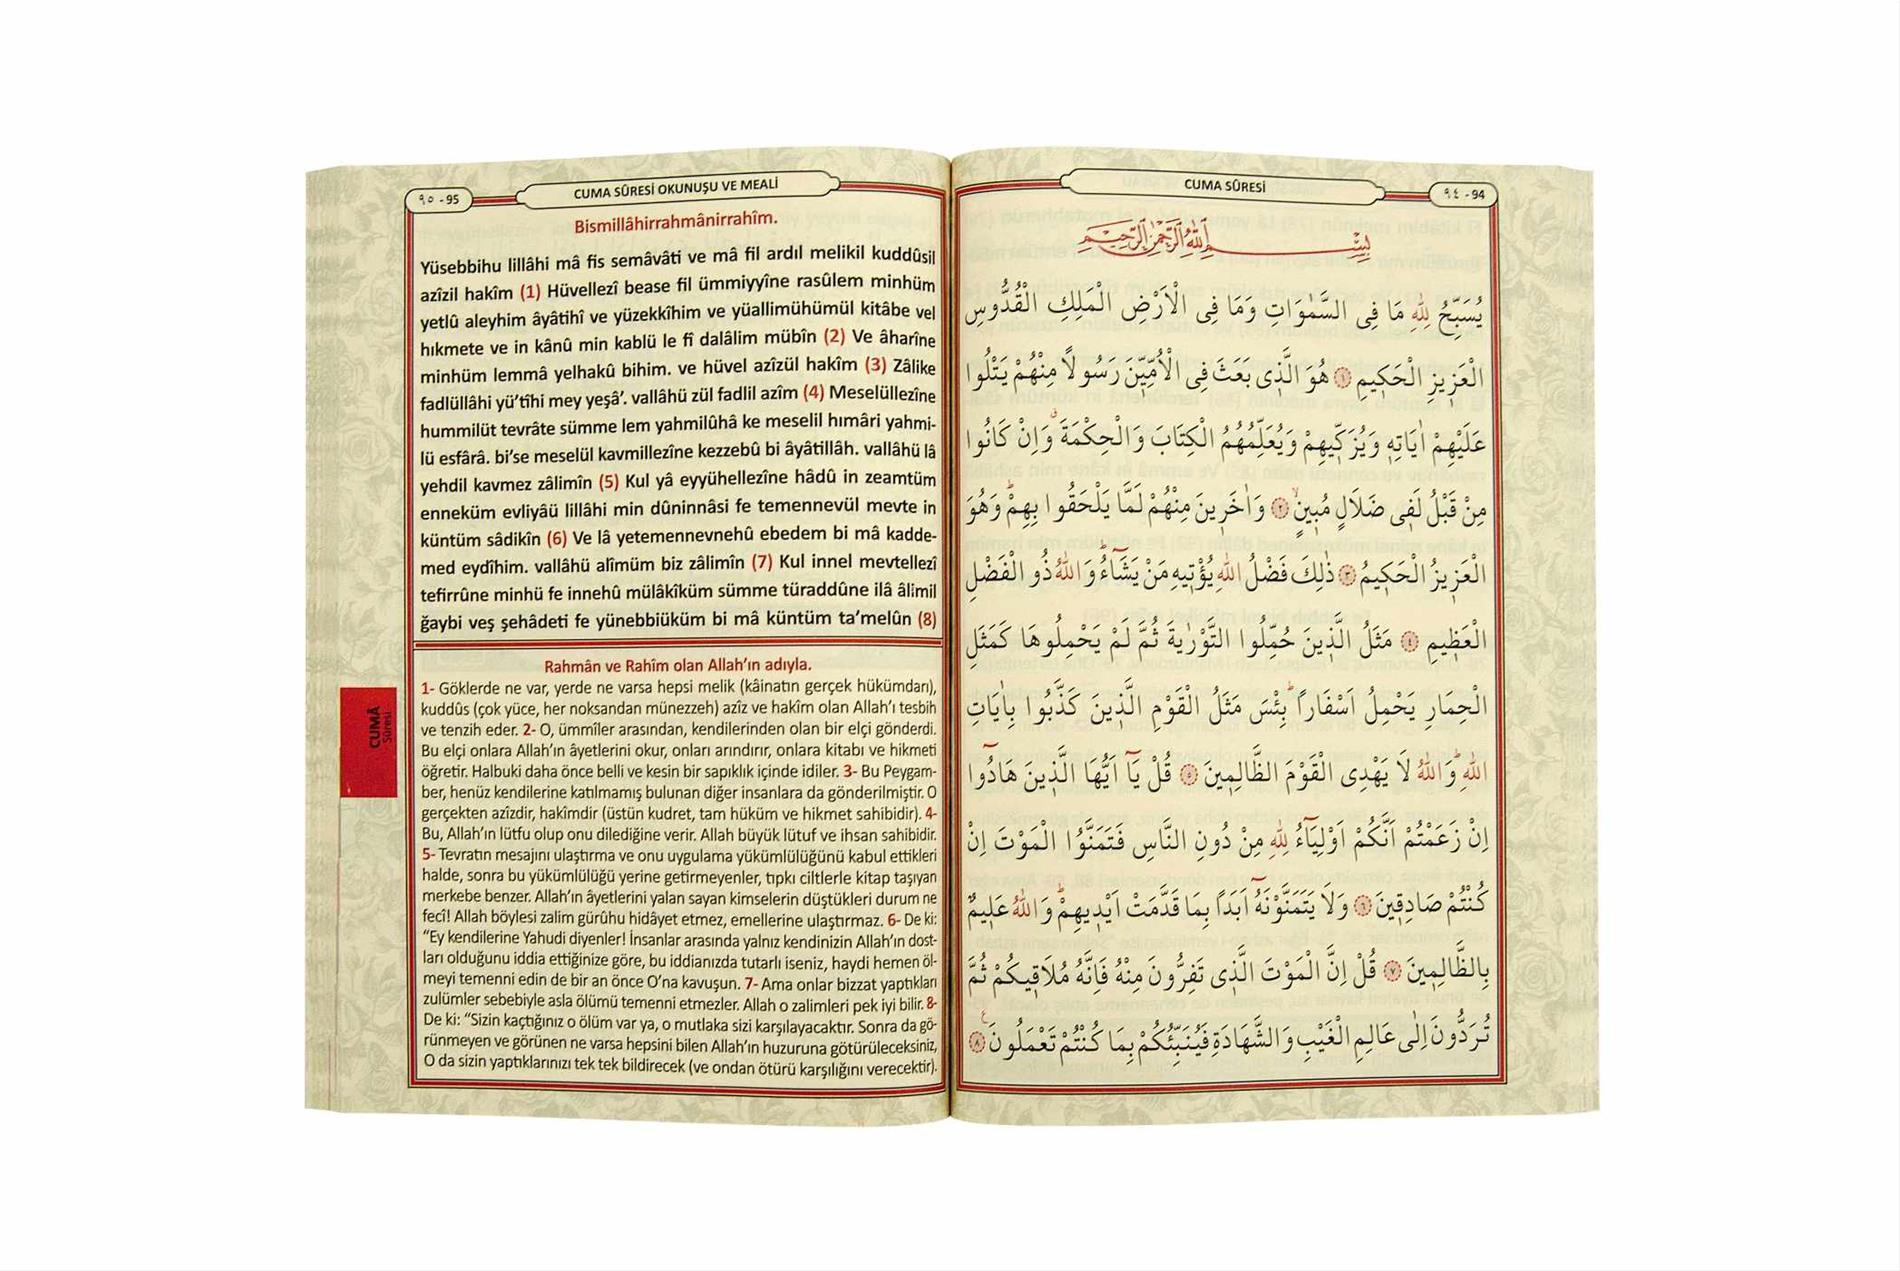 ٩٥ - 95
CUMA SÛRESİ OKUNUŞU VE MEALİ
Bismillâhirrahmânirrahîm.
Yüsebbihu lillâhi mâ fis semâvâti ve mâ fil ardıl melikil kuddûsil
azîzil hakîm (1) Hüvellezî bease fil ümmiyyîne rasûlem minhüm
yetlû aleyhim âyâtihî ve yüzekkîhim ve yüallimühümül kitâbe vel
hıkmete ve in kânû min kablü le fî dalâlim mübîn (2) Ve âharîne
minhüm lemmâ yelhakû bihim. ve hüvel azîzül hakîm (3) Zâlike
fadlüllâhi yü'tîhi mey yeşâ'. vallâhü zül fadlil azîm (4) Meselüllezîne
hummilüt tevrâte sümme lem yahmilûhâ ke meselil hımâri yahmi-
lü esfârâ. bi'se meselül kavmillezîne kezzebû bi âyâtillâh. vallâhü lâ
yehdil kavmez zâlimîn (5) Kul yâ eyyühellezîne hâdû in zeamtüm
enneküm evliyâü lillâhi min dûninnâsi fe temennevül mevte in
küntüm sâdikîn (6) Ve lâ yetemennevnehû ebedem bi mâ kadde-
med eydîhim. vallâhü alîmüm biz zâlimîn (7) Kul innel mevtellezî
tefirrûne minhü fe innehû mülâkîküm sümme türaddûne ilâ âlimil
ğaybi veş şehâdeti fe yünebbiüküm bi mâ küntüm ta'melûn (8)
Rahmân ve Rahîm olan Allah'ın adıyla.
1- Göklerde ne var, yerde ne varsa hepsi melik (kâinatın gerçek hükümdarı),
kuddûs (çok yüce, her noksandan münezzeh) azîz ve hakîm olan Allah'ı tesbih
ve tenzih eder. 2- O, ümmîler arasından, kendilerinden olan bir elçi gönderdi.
Bu elçi onlara Allah'ın âyetlerini okur, onları arındırır, onlara kitabı ve hikmeti
öğretir. Halbuki daha önce belli ve kesin bir sapıklık içinde idiler. 3- Bu Peygam-
ber, henüz kendilerine katılmamış bulunan diğer insanlara da gönderilmiştir. O
gerçekten azîzdir, hakîmdir (üstün kudret, tam hüküm ve hikmet sahibidir). 4-
Bu, Allah'ın lütfu olup onu dilediğine verir. Allah büyük lütuf ve ihsan sahibidir.
5- Tevratın mesajını ulaştırma ve onu uygulama yükümlülüğünü kabul ettikleri
halde, sonra bu yükümlülüğü yerine getirmeyenler, tıpkı ciltlerle kitap taşıyan
merkebe benzer. Allah'ın âyetlerini yalan sayan kimselerin düştükleri durum ne
fecî! Allah böylesi zalim gürûhu hidâyet etmez, emellerine ulaştırmaz. 6- De ki:
"Ey kendilerine Yahudi diyenler! İnsanlar arasında yalnız kendinizin Allah'ın dost-
ları olduğunu iddia ettiğinize göre, bu iddianızda tutarlı iseniz, haydi hemen öl-
meyi temenni edin de bir an önce O'na kavuşun. 7- Ama onlar bizzat yaptıkları
zulümler sebebiyle asla ölümü temenni etmezler. Allah o zalimleri pek iyi bilir. 8-
De ki: "Sizin kaçtığınız o ölüm var ya, o mutlaka sizi karşılayacaktır. Sonra da gö-
rünmeyen ve görünen ne varsa hepsini bilen Allah'ın huzuruna götürüleceksiniz,
O da sizin yaptıklarınızı tek tek bildirecek (ve ondan ötürü karşılığını verecektir).
CUMÂ
Sûresi
CUMA SÛRESİ
٩٤ - 94
بِسْمِ اللّٰهِ الرَّحْمٰنِ الرَّحِيمِ
يُسَبِّحُ لِلّٰهِ مَا فِى السَّمٰوَاتِ وَمَا فِى الْاَرْضِ الْمَلِكِ الْقُدُّوسِ
الْعَزِيزِ الْحَكِيمِ ﴿١﴾ هُوَ الَّذِى بَعَثَ فِى الْاُمِّيّٖنَ رَسُولًا مِنْهُمْ يَتْلُوا
عَلَيْهِمْ اٰيَاتِهٖ وَيُزَكّٖيهِمْ وَيُعَلِّمُهُمُ الْكِتَابَ وَالْحِكْمَةَ وَاِنْ كَانُوا
مِنْ قَبْلُ لَفٖى ضَلَالٍ مُبٖينٍ ﴿٢﴾ وَاٰخَرٖينَ مِنْهُمْ لَمَّا يَلْحَقُوا بِهِمْ وَهُوَ
الْعَزٖيزُ الْحَكٖيمُ ﴿٣﴾ ذٰلِكَ فَضْلُ اللّٰهِ يُؤْتٖيهِ مَنْ يَشَٓاءُ وَاللّٰهُ ذُو الْفَضْلِ
الْعَظٖيمِ ﴿٤﴾ مَثَلُ الَّذٖينَ حُمِّلُوا التَّوْرٰيةَ ثُمَّ لَمْ يَحْمِلُوهَا كَمَثَلِ
الْحِمَارِ يَحْمِلُ اَسْفَارًا بِئْسَ مَثَلُ الْقَوْمِ الَّذٖينَ كَذَّبُوا بِاٰيَاتِ
اللّٰهِ وَاللّٰهُ لَا يَهْدِى الْقَوْمَ الظَّالِمٖينَ ﴿٥﴾ قُلْ يَٓا اَيُّهَا الَّذٖينَ هَادُٓوا
اِنْ زَعَمْتُمْ اَنَّكُمْ اَوْلِيَٓاءُ لِلّٰهِ مِنْ دُونِ النَّاسِ فَتَمَنَّوُا الْمَوْتَ اِنْ
كُنْتُمْ صَادِقٖينَ ﴿٦﴾ وَلَا يَتَمَنَّوْنَهُٓ اَبَدًا بِمَا قَدَّمَتْ اَيْدٖيهِمْ وَاللّٰهُ عَلٖيمٌ
بِالظَّالِمٖينَ ﴿٧﴾ قُلْ اِنَّ الْمَوْتَ الَّذٖى تَفِرُّونَ مِنْهُ فَاِنَّهُ مُلَاقٖيكُمْ ثُمَّ
تُرَدُّونَ اِلٰى عَالِمِ الْغَيْبِ وَالشَّهَادَةِ فَيُنَبِّئُكُمْ بِمَا كُنْتُمْ تَعْمَلُونَ ﴿٨﴾